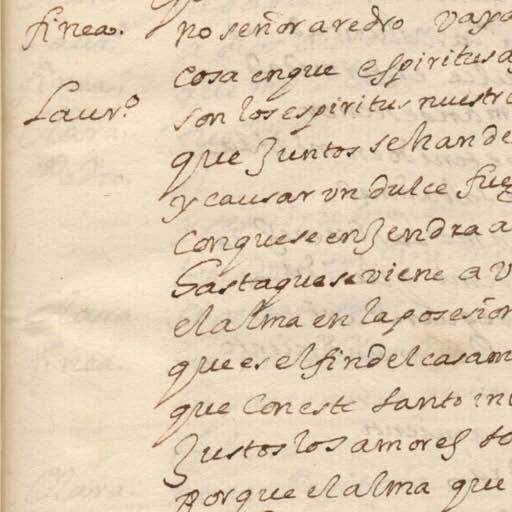 finea. no señor aredro vaya
cosa en que espiritus a
Laur.º son los espiritus nuestro
que Juntos se han de
y causar vn dulce fue
con que se enJendra a
hasta que se viene a v
el alma en la posesion
que es el fin del casam
que con este santo in
Justos los amores so
Porque el alma que